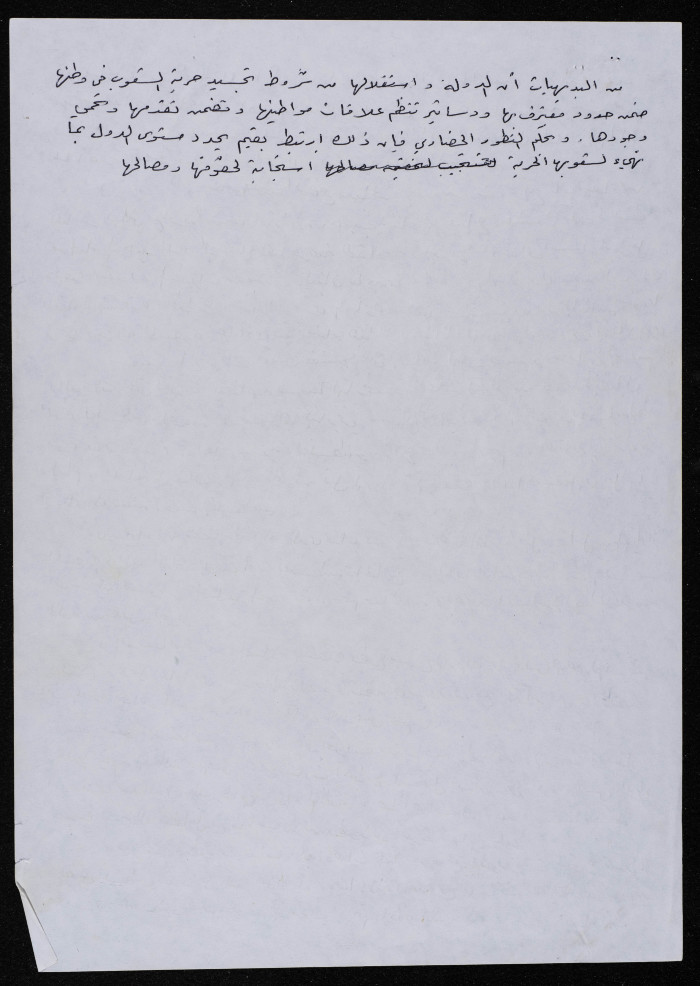 من البديهيات أن الدولة واستقلالها من شروط تجسيد حرية الشعوب في وطنها
ضمن حدود معترف بها ودساتير تنظم علاقات مواطنيها وتضمن تقدمها وتحمي
وجودها. وبحكم التطور الحضاري فإن ذلك ارتبط بقيم يحدد مستوى الدول بما
تهيء لشعوبها الحرية لتستجيب لتحقيق مصالحها استجابة لحقوقها ومصالحها